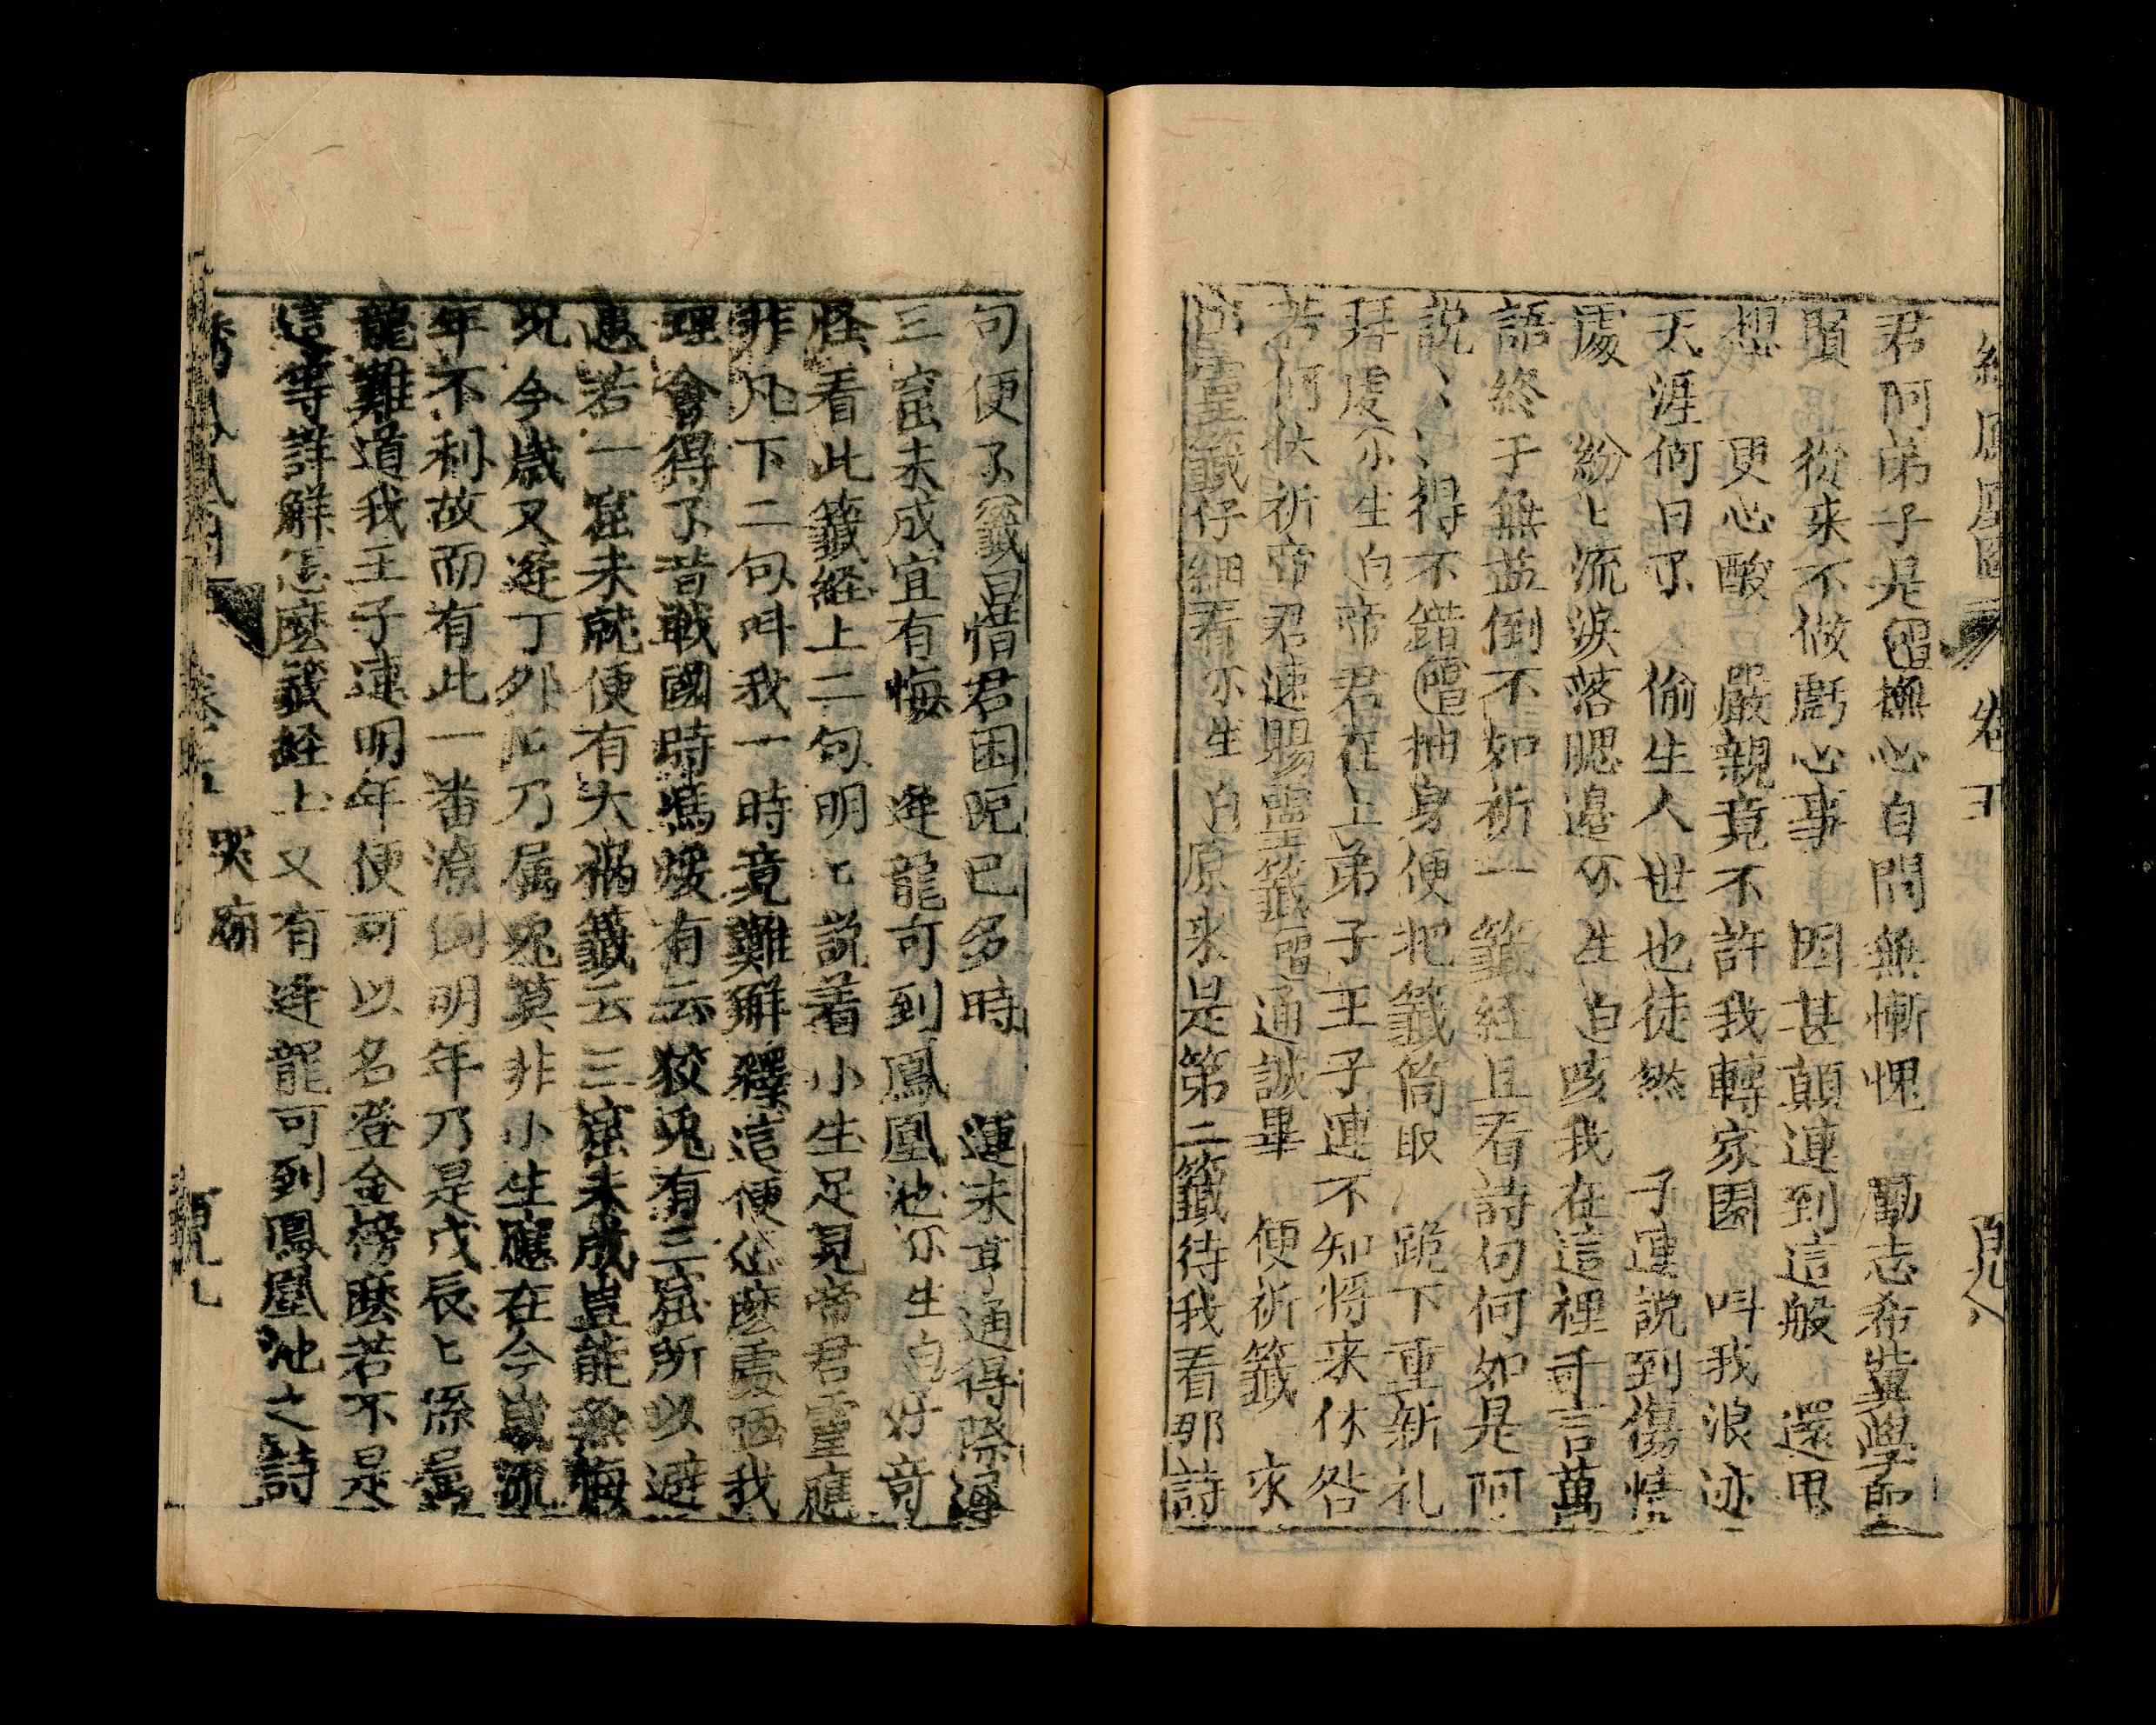 繡鳳凰圖 卷五
君阿弟子是唱撫心自問無慚愧 勵志希賢學聖
賢 從來不做虧心事 因甚顛連到這般 還思
想 更心酸 嚴親竟不許我轉家園 叫我浪迹
天涯何日了 偷生人世也徒然 子連說到傷情
處 紛〻流淚落腮邉 小生白咳我在這裡千言萬
語終于無益倒不如祈一籤経且看詩句何如是阿
說〻〻得不錯唱抽身便把籤筒取 跪下重新礼
拜虔小生白帝君在上弟子王子連不知将来休咎
若何伏祈帝君速賜靈籤唱通誠畢 便祈籤 求
出靈籤仔細看小生白原来是第二籤待我看那詩
句便了籤曰惜君困阨已多時 運未亨通得際遇
三窟未成宜有悔 逢龍可到鳳凰池小生白好竒
怪看此籤経上二句明〻說着小生足見帝君靈應
非凡下二句叫我一時竟難解釋這便怎麽處唔我
理會得了昔戰國時馮煖有云狡兎有三窟所以避
患若一窟未就便有大禍籤云三窟未成豈能無悔
况今歲又逢丁卯〻乃属兎莫非小生應在今歲流
年不利故而有此一畨潦倒明年乃是戊辰〻係屬
龍難道我王子連明年便可以名登金榜麽若不是
這等詳解怎麽籤経上又有逢龍可到鳳凰池之詩
繡鳳凰圖 卷五 哭廟